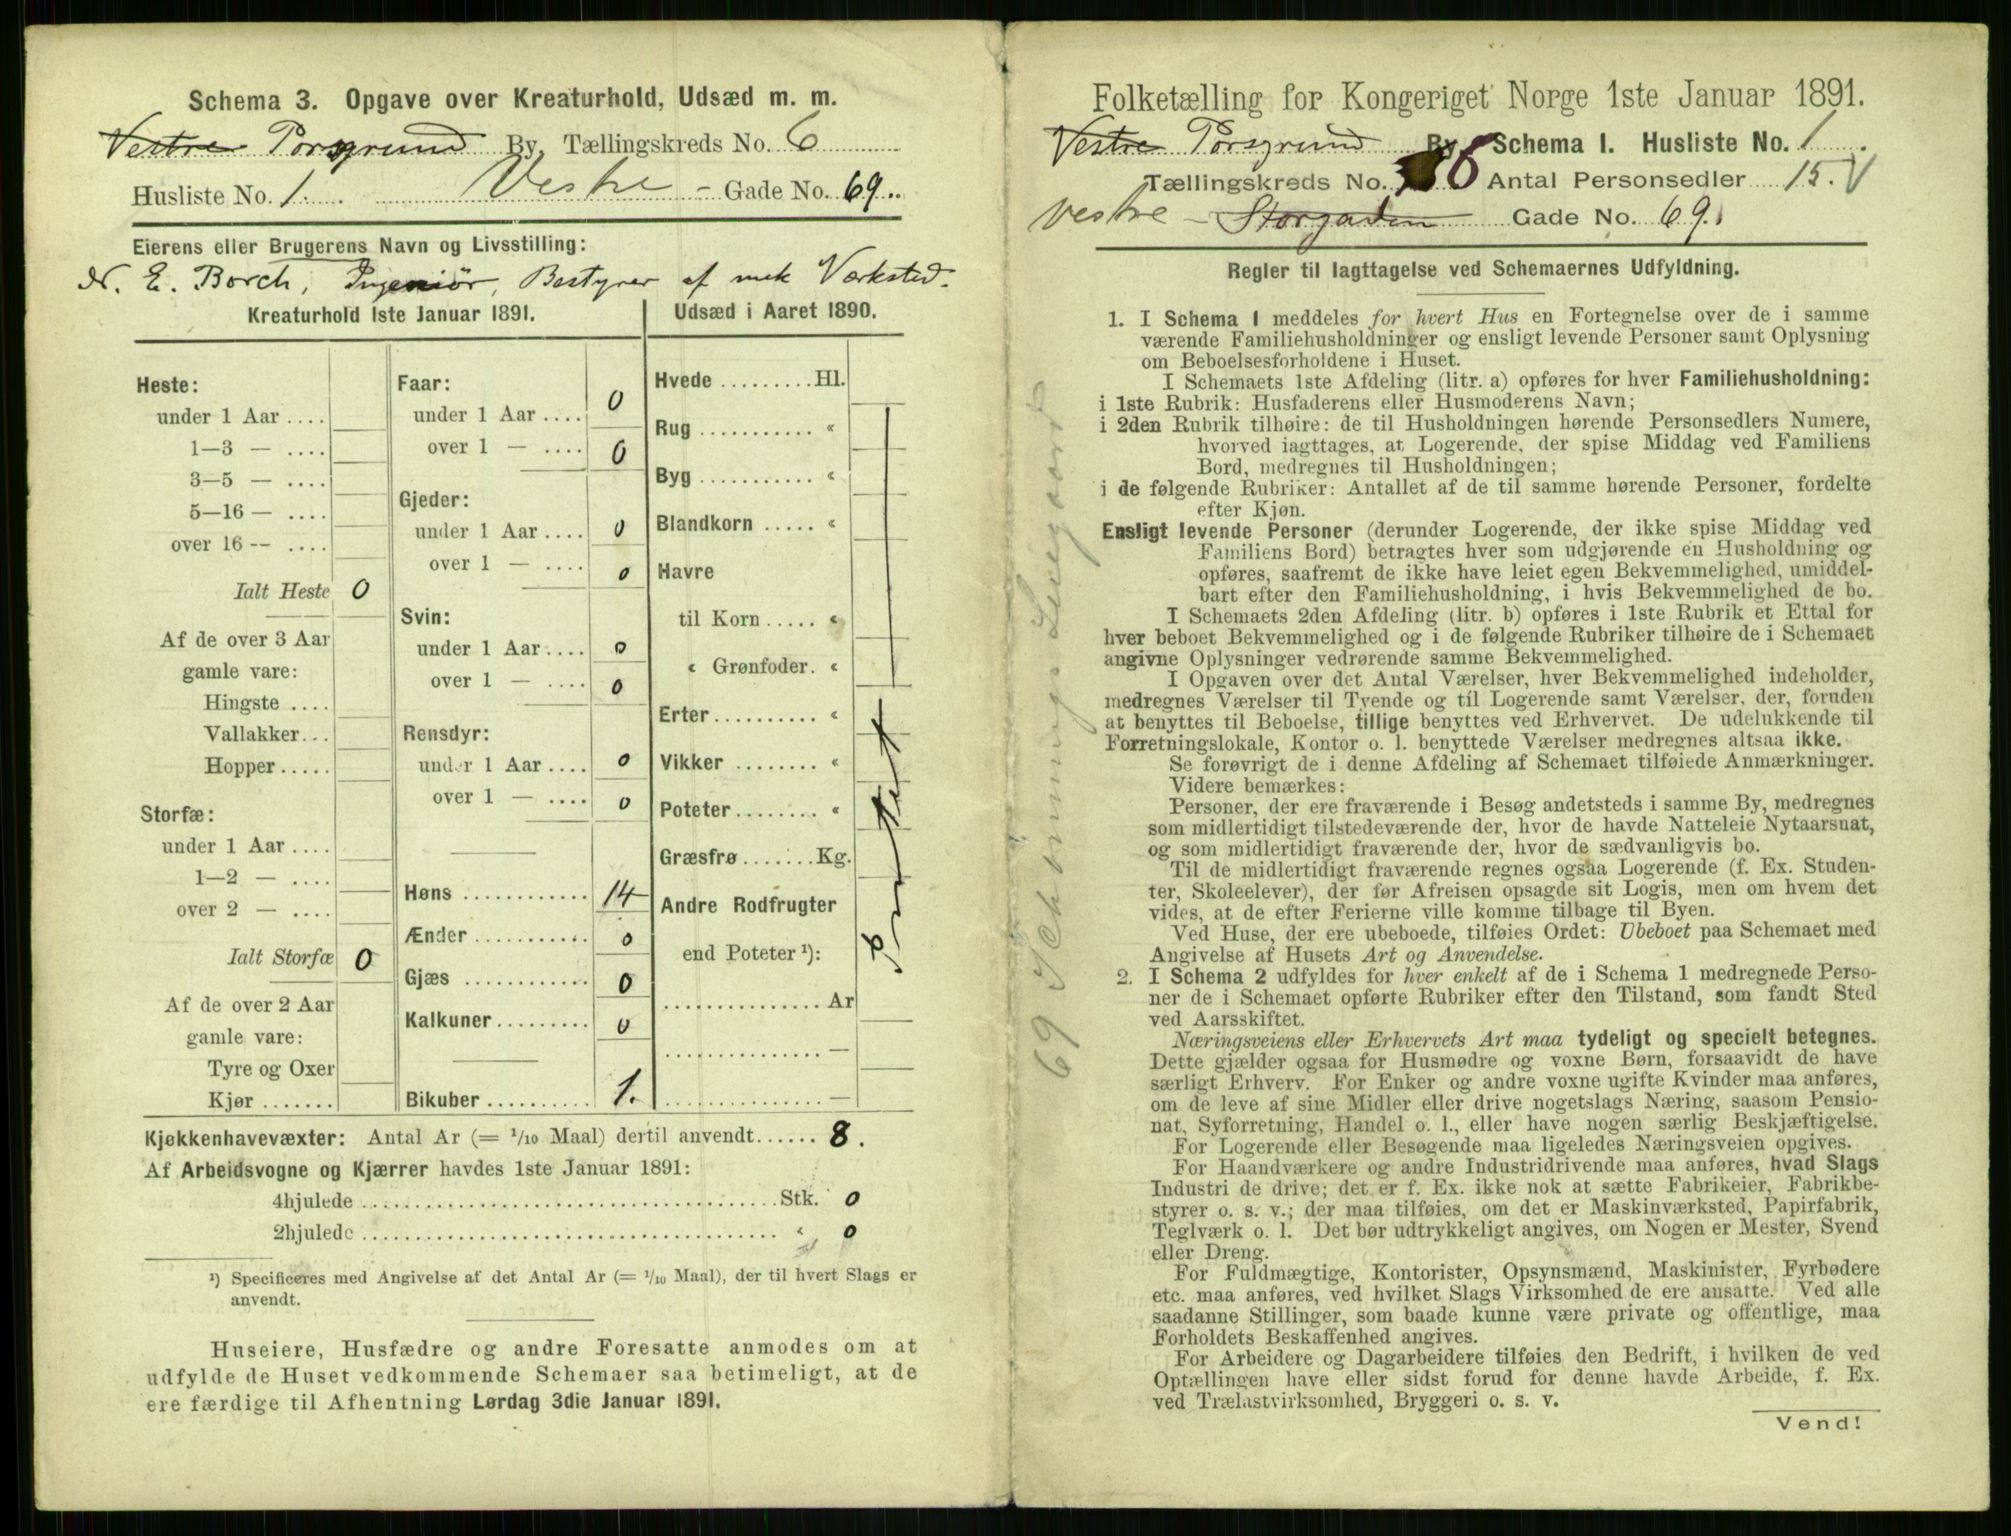 Schema 3. Opgave over Kreaturhold, Udsæd m. m.
Vestre Porsgrund By, Tællingskreds No. 6
Husliste No. 1. Vestre - Gade No. 69..
Eierens eller Brugerens Navn og Livsstilling:
N. E. Borch, Ingeniør, Bestyrer af mek Værksted.
Kreaturhold 1ste Januar 1891.
Heste:
under 1 Aar ....
1—3 — ....
3—5 — ....
5—16 — ....
over 16 -- ....
Ialt Heste 0
Af de over 3 Aar
gamle vare:
Hingste ....
Vallakker...
Hopper.....
Storfæ:
under 1 Aar ....
1—2 — ....
over 2 — ....
Ialt Storfæ 0
Af de over 2 Aar
gamle vare:
Tyre og Oxer
Kjør.......
Faar:
under 1 Aar .... 0
over 1 — .... 0
Gjeder:
under 1 Aar .... 0
over 1 — .... 0
Svin:
under 1 Aar .... 0
over 1 — .... 0
Rensdyr:
under 1 Aar .... 0
over 1 — .... 0
Høns ............ 14
Ænder ........... 0
Gjæs ............ 0
Kalkuner......... 0
Bikuber.......... 1.
Udsæd i Aaret 1890.
Hvede .........Hl.
Rug ........... "
Byg ........... "
Blandkorn ..... "
Havre
til Korn ..... "
" Grønfoder. "
Erter.......... "
Vikker ........ "
Poteter........ "
Græsfrø.......Kg.
Andre Rodfrugter
end Poteter ¹):
...............Ar
............... —
............... —
Kjøkkenhavevæxter: Antal Ar (= 1/10 Maal) dertil anvendt...... 8.
Af Arbeidsvogne og Kjærrer havdes 1ste Januar 1891:
4hjulede ........................................Stk. 0
2hjulede ........................................ " 0
¹) Specificeres med Angivelse af det Antal Ar (= 1/10 Maal), der til hvert Slags er
anvendt.
Huseiere, Husfædre og andre Foresatte anmodes om at
udfylde de Huset vedkommende Schemaer saa betimeligt, at de
ere færdige til Afhentning Lørdag 3die Januar 1891.
Folketælling for Kongeriget Norge 1ste Januar 1891.
Vestre Porsgrund By, Schema I. Husliste No. 1.
Tællingskreds No. 6 Antal Personsedler 15. V
Vestre - Storgaden Gade No. 69.
Regler til Iagttagelse ved Schemaernes Udfyldning.
1. I Schema 1 meddeles for hvert Hus en Fortegnelse over de i samme
værende Familiehusholdninger og ensligt levende Personer samt Oplysning
om Beboelsesforholdene i Huset.
I Schemaets 1ste Afdeling (litr. a) opføres for hver Familiehusholdning:
i 1ste Rubrik: Husfaderens eller Husmoderens Navn;
i 2den Rubrik tilhøire: de til Husholdningen hørende Personsedlers Numere,
hvorved iagttages, at Logerende, der spise Middag ved Familiens
Bord, medregnes til Husholdningen;
i de følgende Rubriker: Antallet af de til samme hørende Personer, fordelte
efter Kjøn.
Ensligt levende Personer (derunder Logerende, der ikke spise Middag ved
Familiens Bord) betragtes hver som udgjørende en Husholdning og
opføres, saafremt de ikke have leiet egen Bekvemmelighed, umiddel-
bart efter den Familiehusholdning, i hvis Bekvemmelighed de bo.
I Schemaets 2den Afdeling (litr. b) opføres i 1ste Rubrik et Ettal for
hver beboet Bekvemmelighed og i de følgende Rubriker tilhøire de i Schemaet
angivne Oplysninger vedrørende samme Bekvemmelighed.
I Opgaven over det Antal Værelser, hver Bekvemmelighed indeholder,
medregnes Værelser til Tyende og til Logerende samt Værelser, der, foruden
at benyttes til Beboelse, tillige benyttes ved Erhvervet. De udelukkende til
Forretningslokale, Kontor o. l. benyttede Værelser medregnes altsaa ikke.
Se forøvrigt de i denne Afdeling af Schemaet tilføiede Anmærkninger.
Videre bemærkes:
Personer, der ere fraværende i Besøg andetsteds i samme By, medregnes
som midlertidigt tilstedeværende der, hvor de havde Natteleie Nytaarsnat,
og som midlertidigt fraværende der, hvor de sædvanligvis bo.
Til de midlertidigt fraværende regnes ogsaa Logerende (f. Ex. Studen-
ter, Skoleelever), der før Afreisen opsagde sit Logis, men om hvem det
vides, at de efter Ferierne ville komme tilbage til Byen.
Ved Huse, der ere ubeboede, tilføies Ordet: Ubeboet paa Schemaet med
Angivelse af Husets Art og Anvendelse.
2. I Schema 2 udfyldes for hver enkelt af de i Schema 1 medregnede Perso-
ner de i Schemaet opførte Rubriker efter den Tilstand, som fandt Sted
ved Aarsskiftet.
Næringsveiens eller Erhvervets Art maa tydeligt og specielt betegnes.
Dette gjælder ogsaa for Husmødre og voxne Børn, forsaavidt de have
særligt Erhverv. For Enker og andre voxne ugifte Kvinder maa anføres,
om de leve af sine Midler eller drive nogetslags Næring, saasom Pensio-
nat, Syforretning, Handel o. l., eller have nogen særlig Beskjæftigelse.
For Logerende eller Besøgende maa ligeledes Næringsveien opgives.
For Haandværkere og andre Industridrivende maa anføres, hvad Slags
Industri de drive; det er f. Ex. ikke nok at sætte Fabrikeier, Fabrikbe-
styrer o. s. v.; der maa tilføies, om det er Maskinværksted, Papirfabrik,
Teglværk o. l. Det bør udtrykkeligt angives, om Nogen er Mester, Svend
eller Dreng.
For Fuldmægtige, Kontorister, Opsynsmænd, Maskinister, Fyrbødere
etc. maa anføres, ved hvilket Slags Virksomhed de ere ansatte. Ved alle
saadanne Stillinger, som baade kunne være private og offentlige, maa
Forholdets Beskaffenhed angives.
For Arbeidere og Dagarbeidere tilføies den Bedrift, i hvilken de ved
Optællingen have eller sidst forud for denne havde Arbeide, f. Ex.
ved Trælastvirksomhed, Bryggeri o. s. v.
Vend!